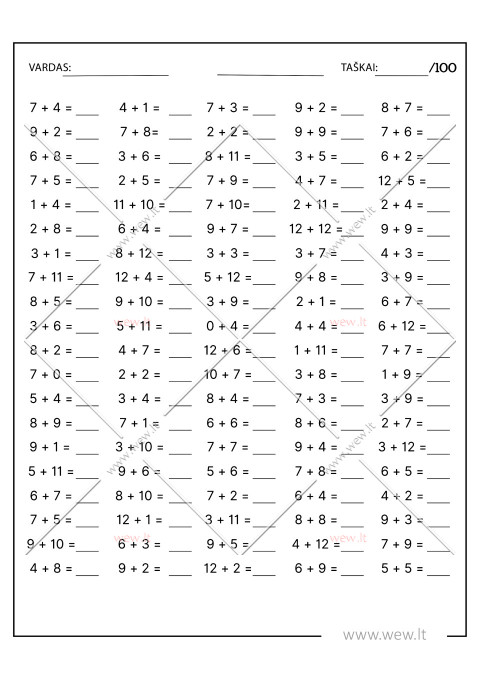 VARDAS:__________________ __________________ TAŠKAI:_________/100
7 + 4 = ____ 4 + 1 = ____ 7 + 3 = ____ 9 + 2 = ____ 8 + 7 = ____
9 + 2 = ____ 7 + 8= ____ 2 + 2 = ____ 9 + 9 = ____ 7 + 6 = ____
6 + 8 = ____ 3 + 6 = ____ 8 + 11 = ____ 3 + 5 = ____ 6 + 2 = ____
7 + 5 = ____ 2 + 5 = ____ 7 + 9 = ____ 4 + 7 = ____ 12 + 5 = ____
1 + 4 = ____ 11 + 10 = ____ 7 + 10= ____ 2 + 11 = ____ 2 + 4 = ____
2 + 8 = ____ 6 + 4 = ____ 9 + 7 = ____ 12 + 12 = ____ 9 + 9 = ____
www.wew.lt www.wew.lt
3 + 1 = ____ 8 + 12 = ____ 3 + 3 = ____ 3 + 7 = ____ 4 + 3 = ____
7 + 11 = ____ 12 + 4 = ____ 5 + 12 = ____ 9 + 8 = ____ 3 + 9 = ____
8 + 5 = ____ 9 + 10 = ____ 3 + 9 = ____ 2 + 1 = ____ 6 + 7 = ____
wew.lt wew.lt
3 + 6 = ____ 5 + 11 = ____ 0 + 4 = ____ 4 + 4 = ____ 6 + 12 = ____
8 + 2 = ____ 4 + 7 = ____ 12 + 6 = ____ 1 + 11 = ____ 7 + 7 = ____
7 + 0 = ____ 2 + 2 = ____ 10 + 7 = ____ 3 + 8 = ____ 1 + 9 = ____
5 + 4 = ____ 3 + 4 = ____ 8 + 4 = ____ 7 + 3 = ____ 3 + 9 = ____
8 + 9 = ____ 7 + 1 = ____ 6 + 6 = ____ 8 + 6 = ____ 2 + 7 = ____
www.wew.lt www.wew.lt
9 + 1 = ____ 3 + 10 = ____ 7 + 7 = ____ 9 + 4 = ____ 3 + 12 = ____
5 + 11 = ____ 9 + 6 = ____ 5 + 6 = ____ 7 + 8 = ____ 6 + 5 = ____
6 + 7 = ____ 8 + 10 = ____ 7 + 2 = ____ 6 + 4 = ____ 4 + 2 = ____
7 + 5 = ____ 12 + 1 = ____ 3 + 11 = ____ 8 + 8 = ____ 9 + 3 = ____
wew.lt wew.lt
9 + 10 = ____ 6 + 3 = ____ 9 + 5 = ____ 4 + 12 = ____ 7 + 9 = ____
4 + 8 = ____ 9 + 2 = ____ 12 + 2 = ____ 6 + 9 = ____ 5 + 5 = ____
www.wew.lt